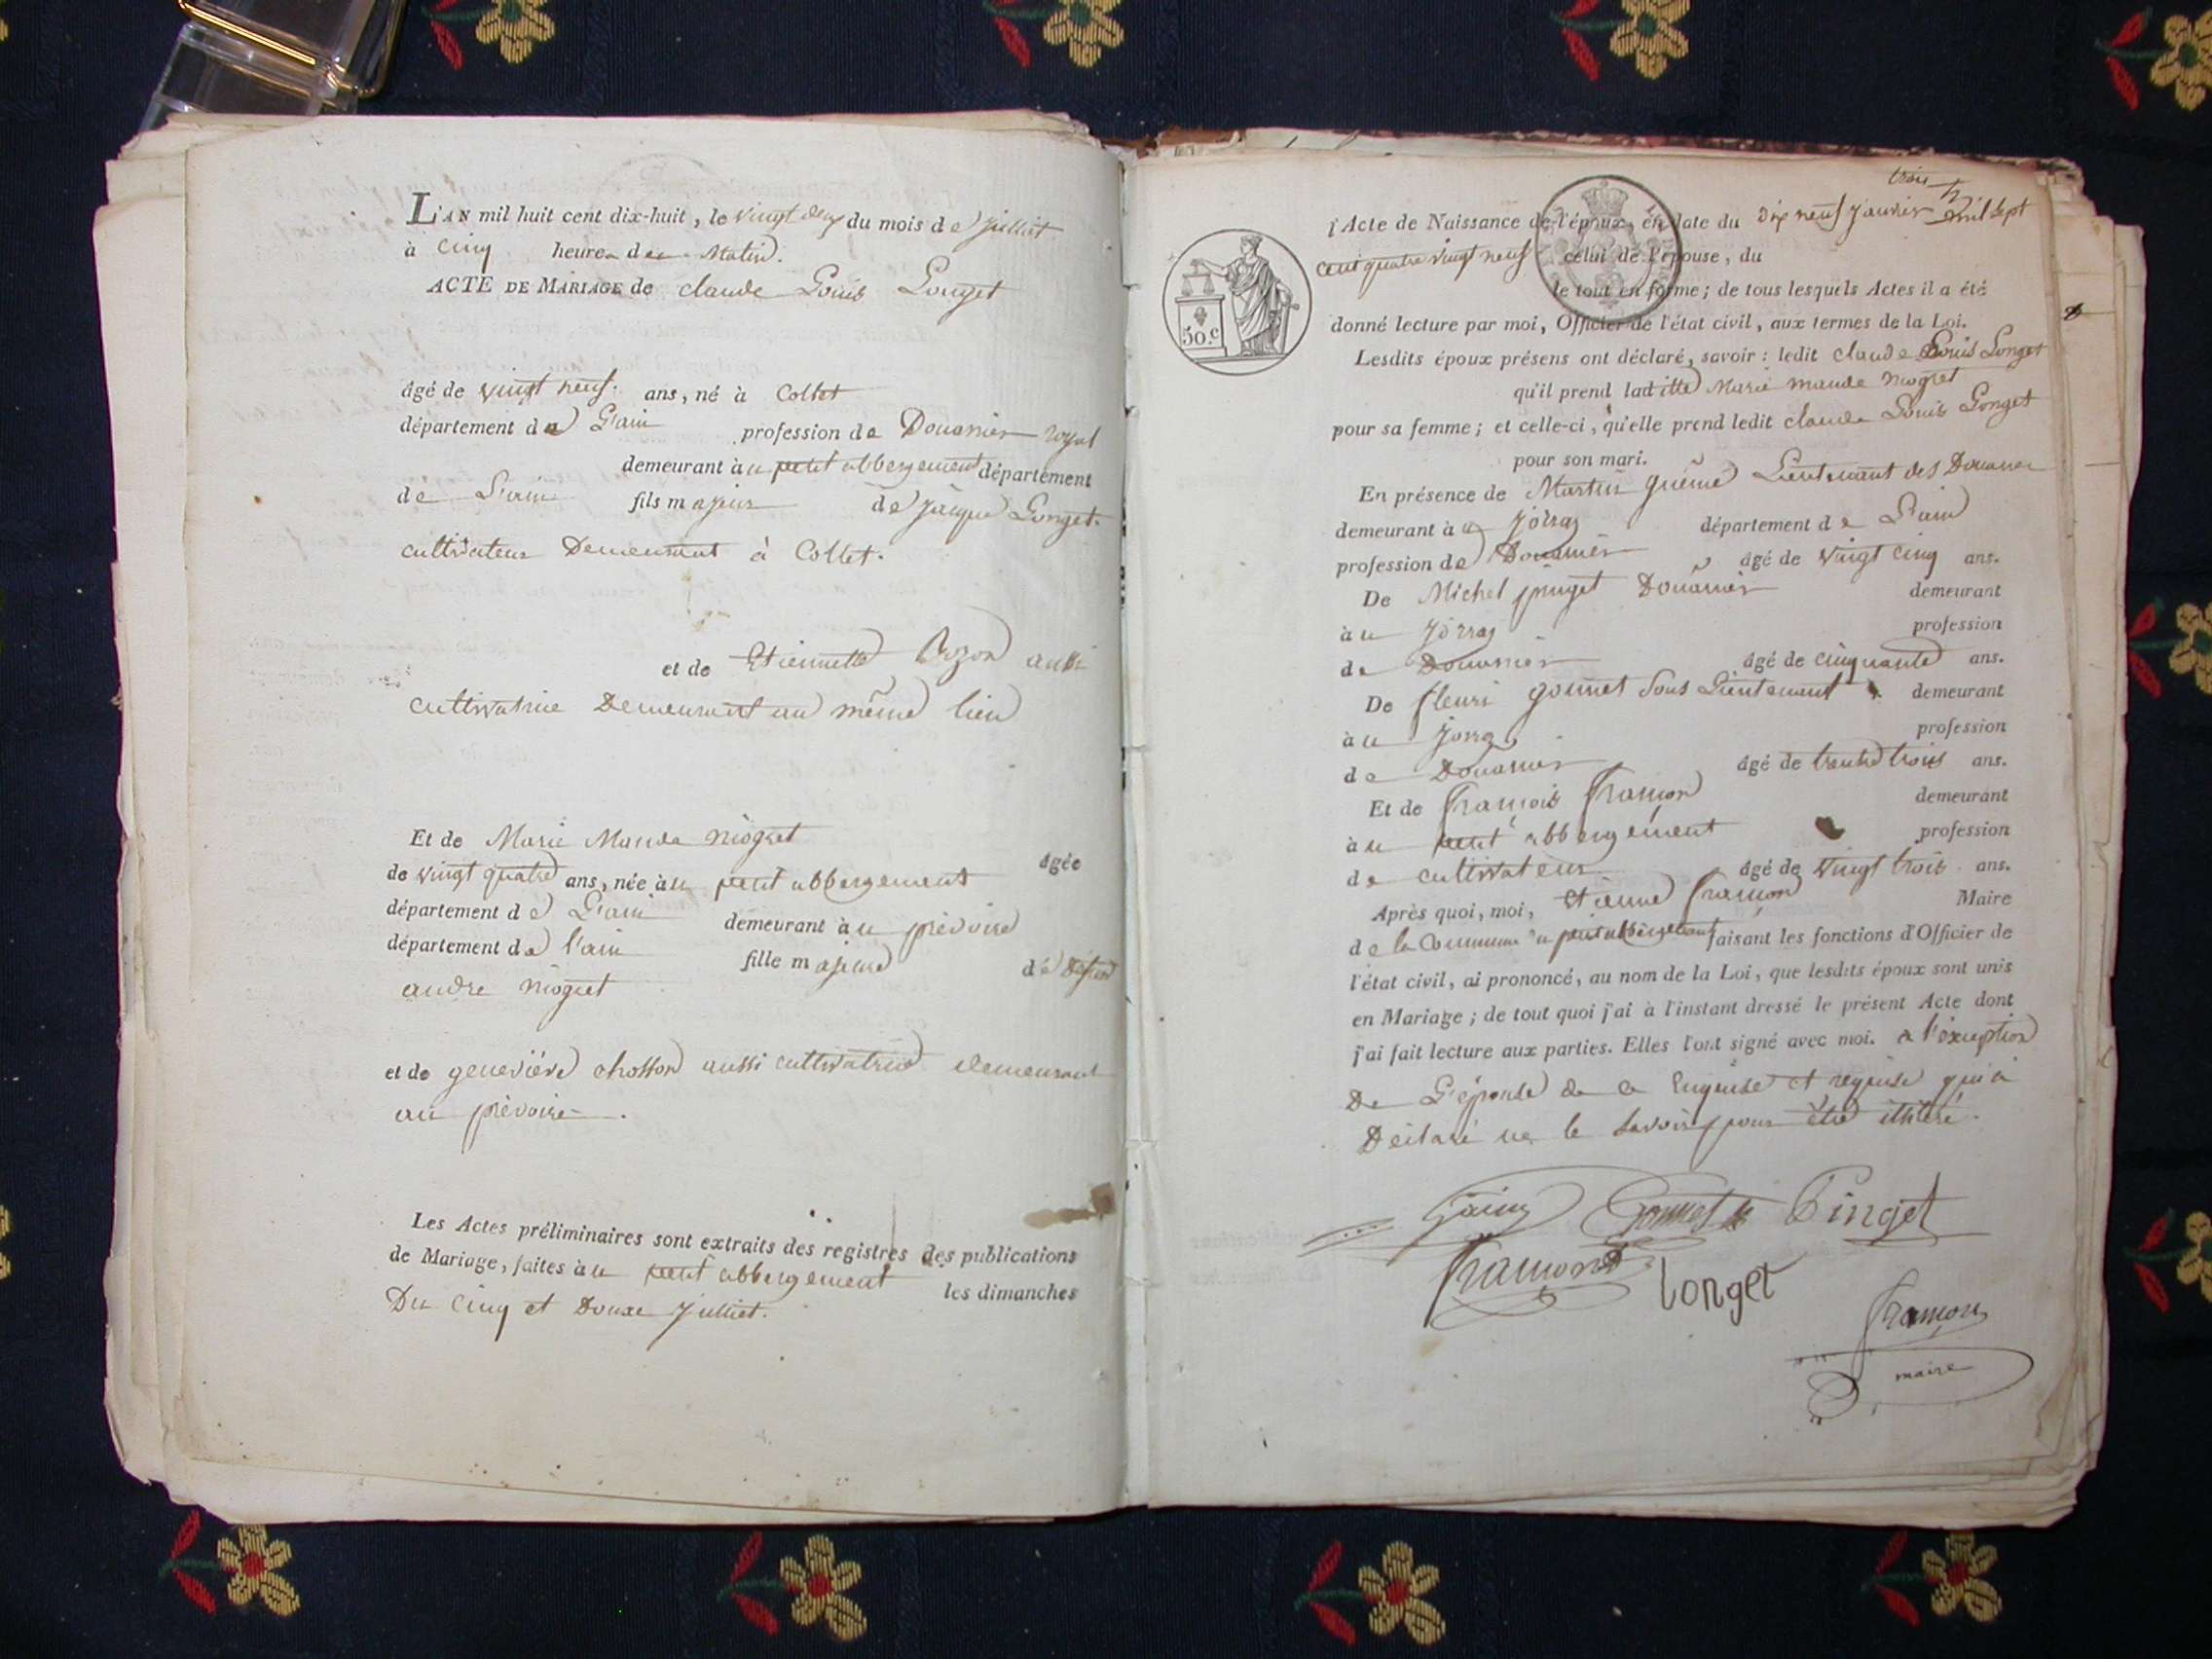 L'AN mil huit cent dix-huit, le vingt deux du mois de Julliet
à cinq heure du Matin.
ACTE DE MARIAGE de claude Louis Longet
âgé de vingt neuf ans, né à Collet
département de L'ain profession de Douanier royal
demeurant à u petit abbergement département
de L'ain fils majeur de Jacque Longet
cultivateur Demeurant à Collet.
et de Etiennette Bozon aussi
cultivatrice Demeurant au même lieu
Et de Marie Mande niogret
âgée
de vingt quatre ans, née à u petit abbergement
département de L'ain demeurant à u prevoire
département de l'ain fille majeure de Defunt
andre niogret
et de geneviève chosson aussi cultivatrice demeurant
au prévoire.
Les Actes préliminaires sont extraits des registres des publications
de Mariage, faites à u petit abbergement les dimanches
Du cinq et Douze Julliet.
trois
l'Acte de Naissance de l'époux, en date du Dix neuf Janvier mil sept
cent quatre vingt neuf celui de l'épouse, du
le tout en forme; de tous lesquels Actes il a été
donné lecture par moi, Officier de l'état civil, aux termes de la Loi.
50.c
Lesdits époux présens ont déclaré, savoir: ledit claude Louis Longet
qu'il prend laditte Marie mande niogret
pour sa femme; et celle-ci, qu'elle prend ledit claude Louis Longet
pour son mari.
En présence de Martin Lieutenant des Douanes
demeurant à u Jorraz département de L'ain
profession de Douanier âgé de vingt cinq ans.
De Michel pinget Douanier demeurant
à u Jorraz profession
de Douanier âgé de cinquante ans.
De fleuri gonnet Sous Lieutenant demeurant
à u Jorraz profession
de Douanier âgé de trente trois ans.
Et de François framon demeurant
à u petit abbergement profession
de cultivateur âgé de vingt trois ans.
Après quoi, moi, Etienne framon Maire
de la Commune u petit abbergement faisant les fonctions d'Officier de
l'état civil, ai prononcé, au nom de la Loi, que lesdits époux sont unis
en Mariage; de tout quoi j'ai à l'instant dressé le présent Acte dont
j'ai fait lecture aux parties. Elles l'ont signé avec moi. a l'exception
De L'épouse de ce Enquise et requise qui a
Déclaré ne le savoir pour être illitéré.
Gonnet Pinget
framond longet
framon
maire